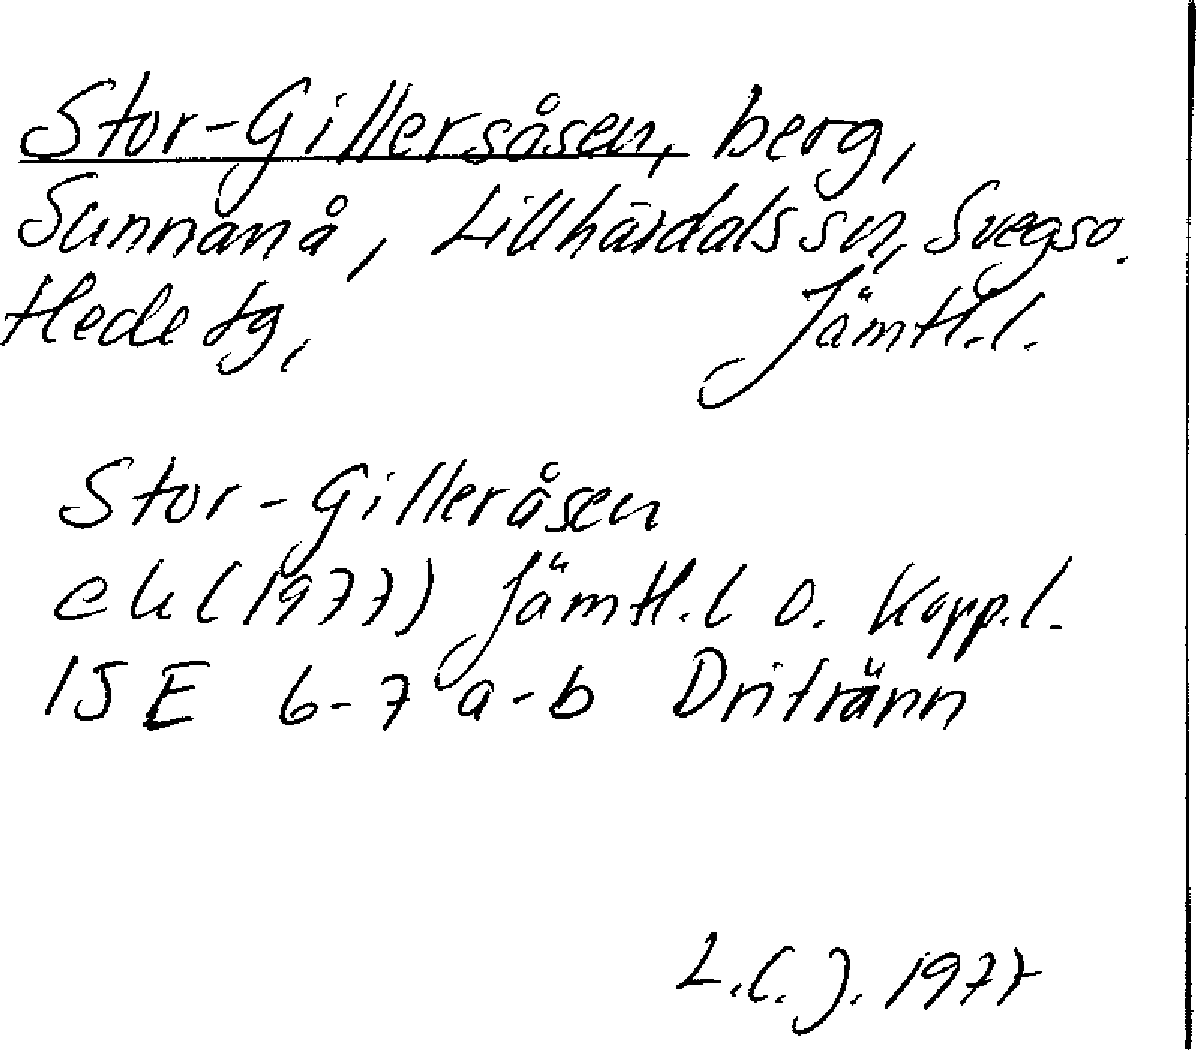 Stor-Gillersåsen, berg,
Sunnanå, Lillhärdals sn, Svegs o.
Hede tg, Jämtl.l.
Stor-Gilleråsen
ek (1977) Jämtl.l o. Kopp.l.
15E 6-7 a-b Dritränn
L.C.J. 1977